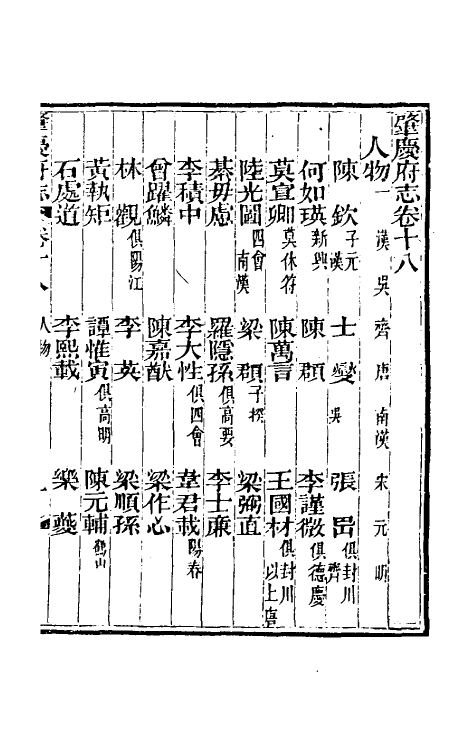 肇慶府志卷十八
人物一 漢 吳 齊 唐 南漢 宋 元 明
陳欽子元漢 士燮吳 張昌俱封川齊
何如瑛新興 陳頵 李謹微俱德慶
莫宣卿莫休符 陳萬言 王國材俱封川以上唐
陸光圖四會南漢 梁頵子揆 梁弼直
綦毋慮 羅隱孫俱高要 李士亷
李積中 李大性俱四會 韋君載陽春
曾躍鱗 陳嘉猷 梁作心
林觀俱陽江 李英 梁順孫
黃執矩 譚惟寅俱高明 陳元輔鶴山
石處道 李熙載 樂䕫
肇慶府志 卷十八 人物 一